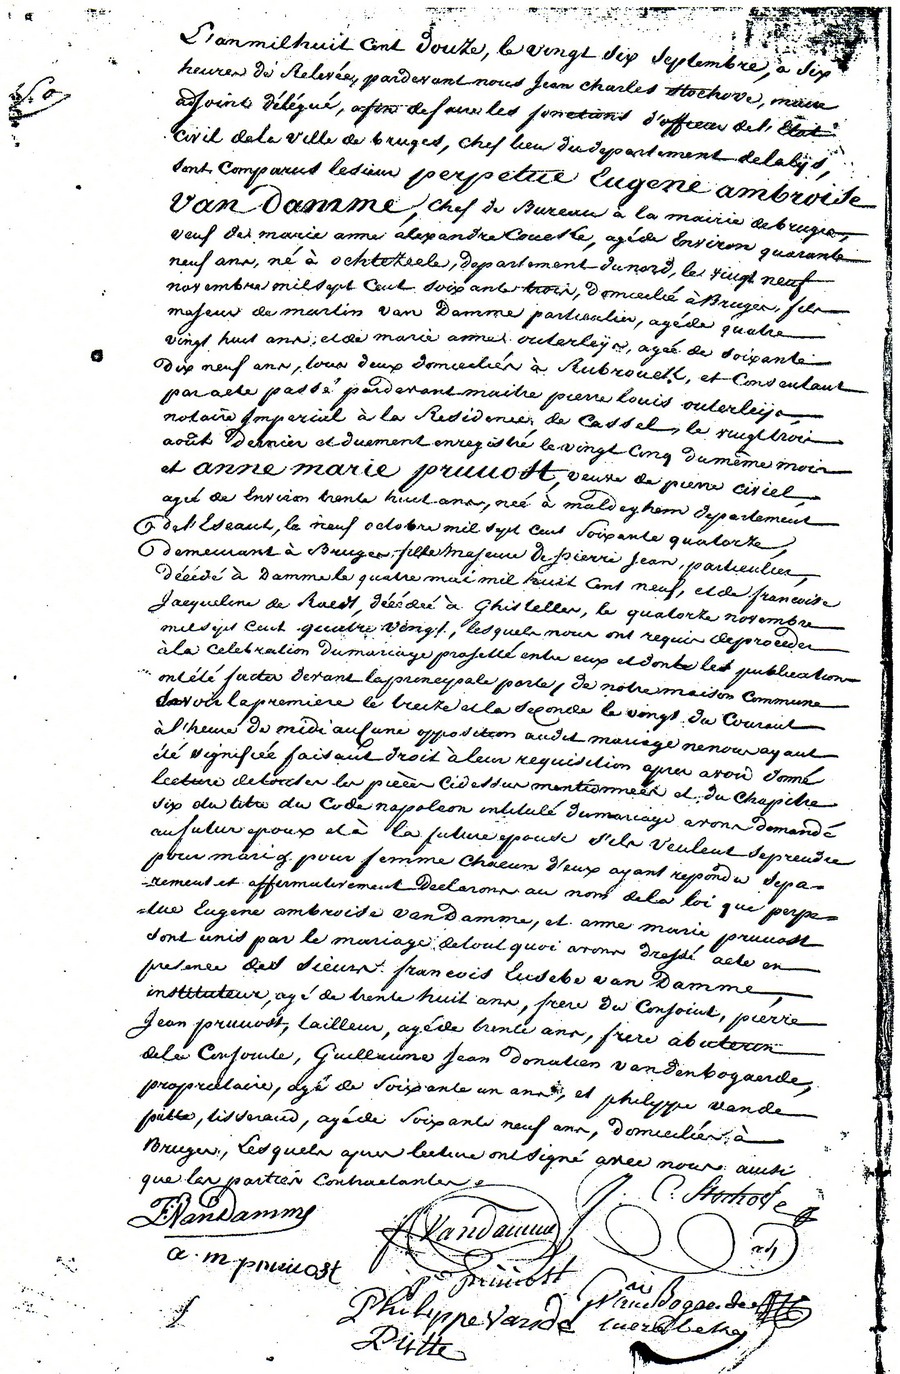 L'an mil huit cent douze, le vingt six septembre, a six
heures de Relevée, pardevant nous Jean Charles Stochove, maire
adjoint délégué, afin de faire les fonctions d'officier de l'Etat
civil de la ville de bruges, chef lieu du departement de la lijs,
sont Comparus le sieur perpetue Eugene ambroise
van Damme, chef de Bureau à la mairie de bruges,
veuf de marie anne alexandre Couette, agé de Environ quarante
neuf ans, né à ochtezeele, departement du nord, le vingt neuf
novembre mil sept Cent soixante trois, domicilié à Bruges, fils
majeur de martin van Damme particulier, agé de quatre
vingt huit ans, et de marie anne outerleijs, agée de soixante
dix neuf ans, tous deux domiciliés à Rubrouck, et Consentant
par acte passé pardevant maitre pierre louis outerleijs
notaire Imperial à la Residence de Cassel, le vingt trois
août dernier et duement enregistré le vingt Cinq du même mois
et anne marie pruuost, veuve de pierre civiel,
agée de Environ trente huit ans, née à maldeghem departement
de l'Escaut, le neuf octobre mil sept cent soixante quatorze,
demeurant à Bruges, fille majeure de pierre Jean, particulier,
décédé à Damme le quatre mai mil huit cent neuf, et de francoise
Jacqueline de Raedt, décédée à Ghistelles, le quatorze novembre
mil sept Cent quatre vingt, lesquels nous ont requis de proceder
à la celebration du mariage projetté entre eux et dont les publications
ont été faites devant la principale porte, de notre maison Commune
savoir la premiere le treize et la seconde le vingt du Courant
à l'heure de midi aucune opposition audit mariage ne nous ayant
été signifiée faisant droit à leur requisition apres avoir donné
lecture de toutes les pièces cidessus mentionnées et du Chapitre
six du titre du Code napoleon intitulé du mariage avons demandé
au futur epoux et à la future epouse s'ils veulent se prendre
pour mari & pour femme chacun d'eux ayant repondu sepa-
-rement et affirmativement Declarons au nom de la loi que perpe-
-tue Eugene ambroise van Damme, et anne marie pruuost
sont unis par le mariage de tout quoi avons dressé acte en
presence des sieurs francois Eusebe van Damme,
instituteur, agé de trente huit ans, frere du Conjoint, pierre
Jean pruuost, tailleur, agé de trente ans, frere abuterin
de la Conjointe, Guillaume Jean Donatien vandenbogaerde,
propriétaire, agé de soixante un ans, et philippe vande
putte, tisserand, agé de soixante neuf ans, domiciliés à
Bruges, Lesquels apres lecture ont signé avec nous ainsi
que les parties Contractantes.
C. Stochove
E. VanDamme
VanDamme
adj
a. m pruuost
pr. pruuost
VandenBogaerde
Philippe Vande
Putte